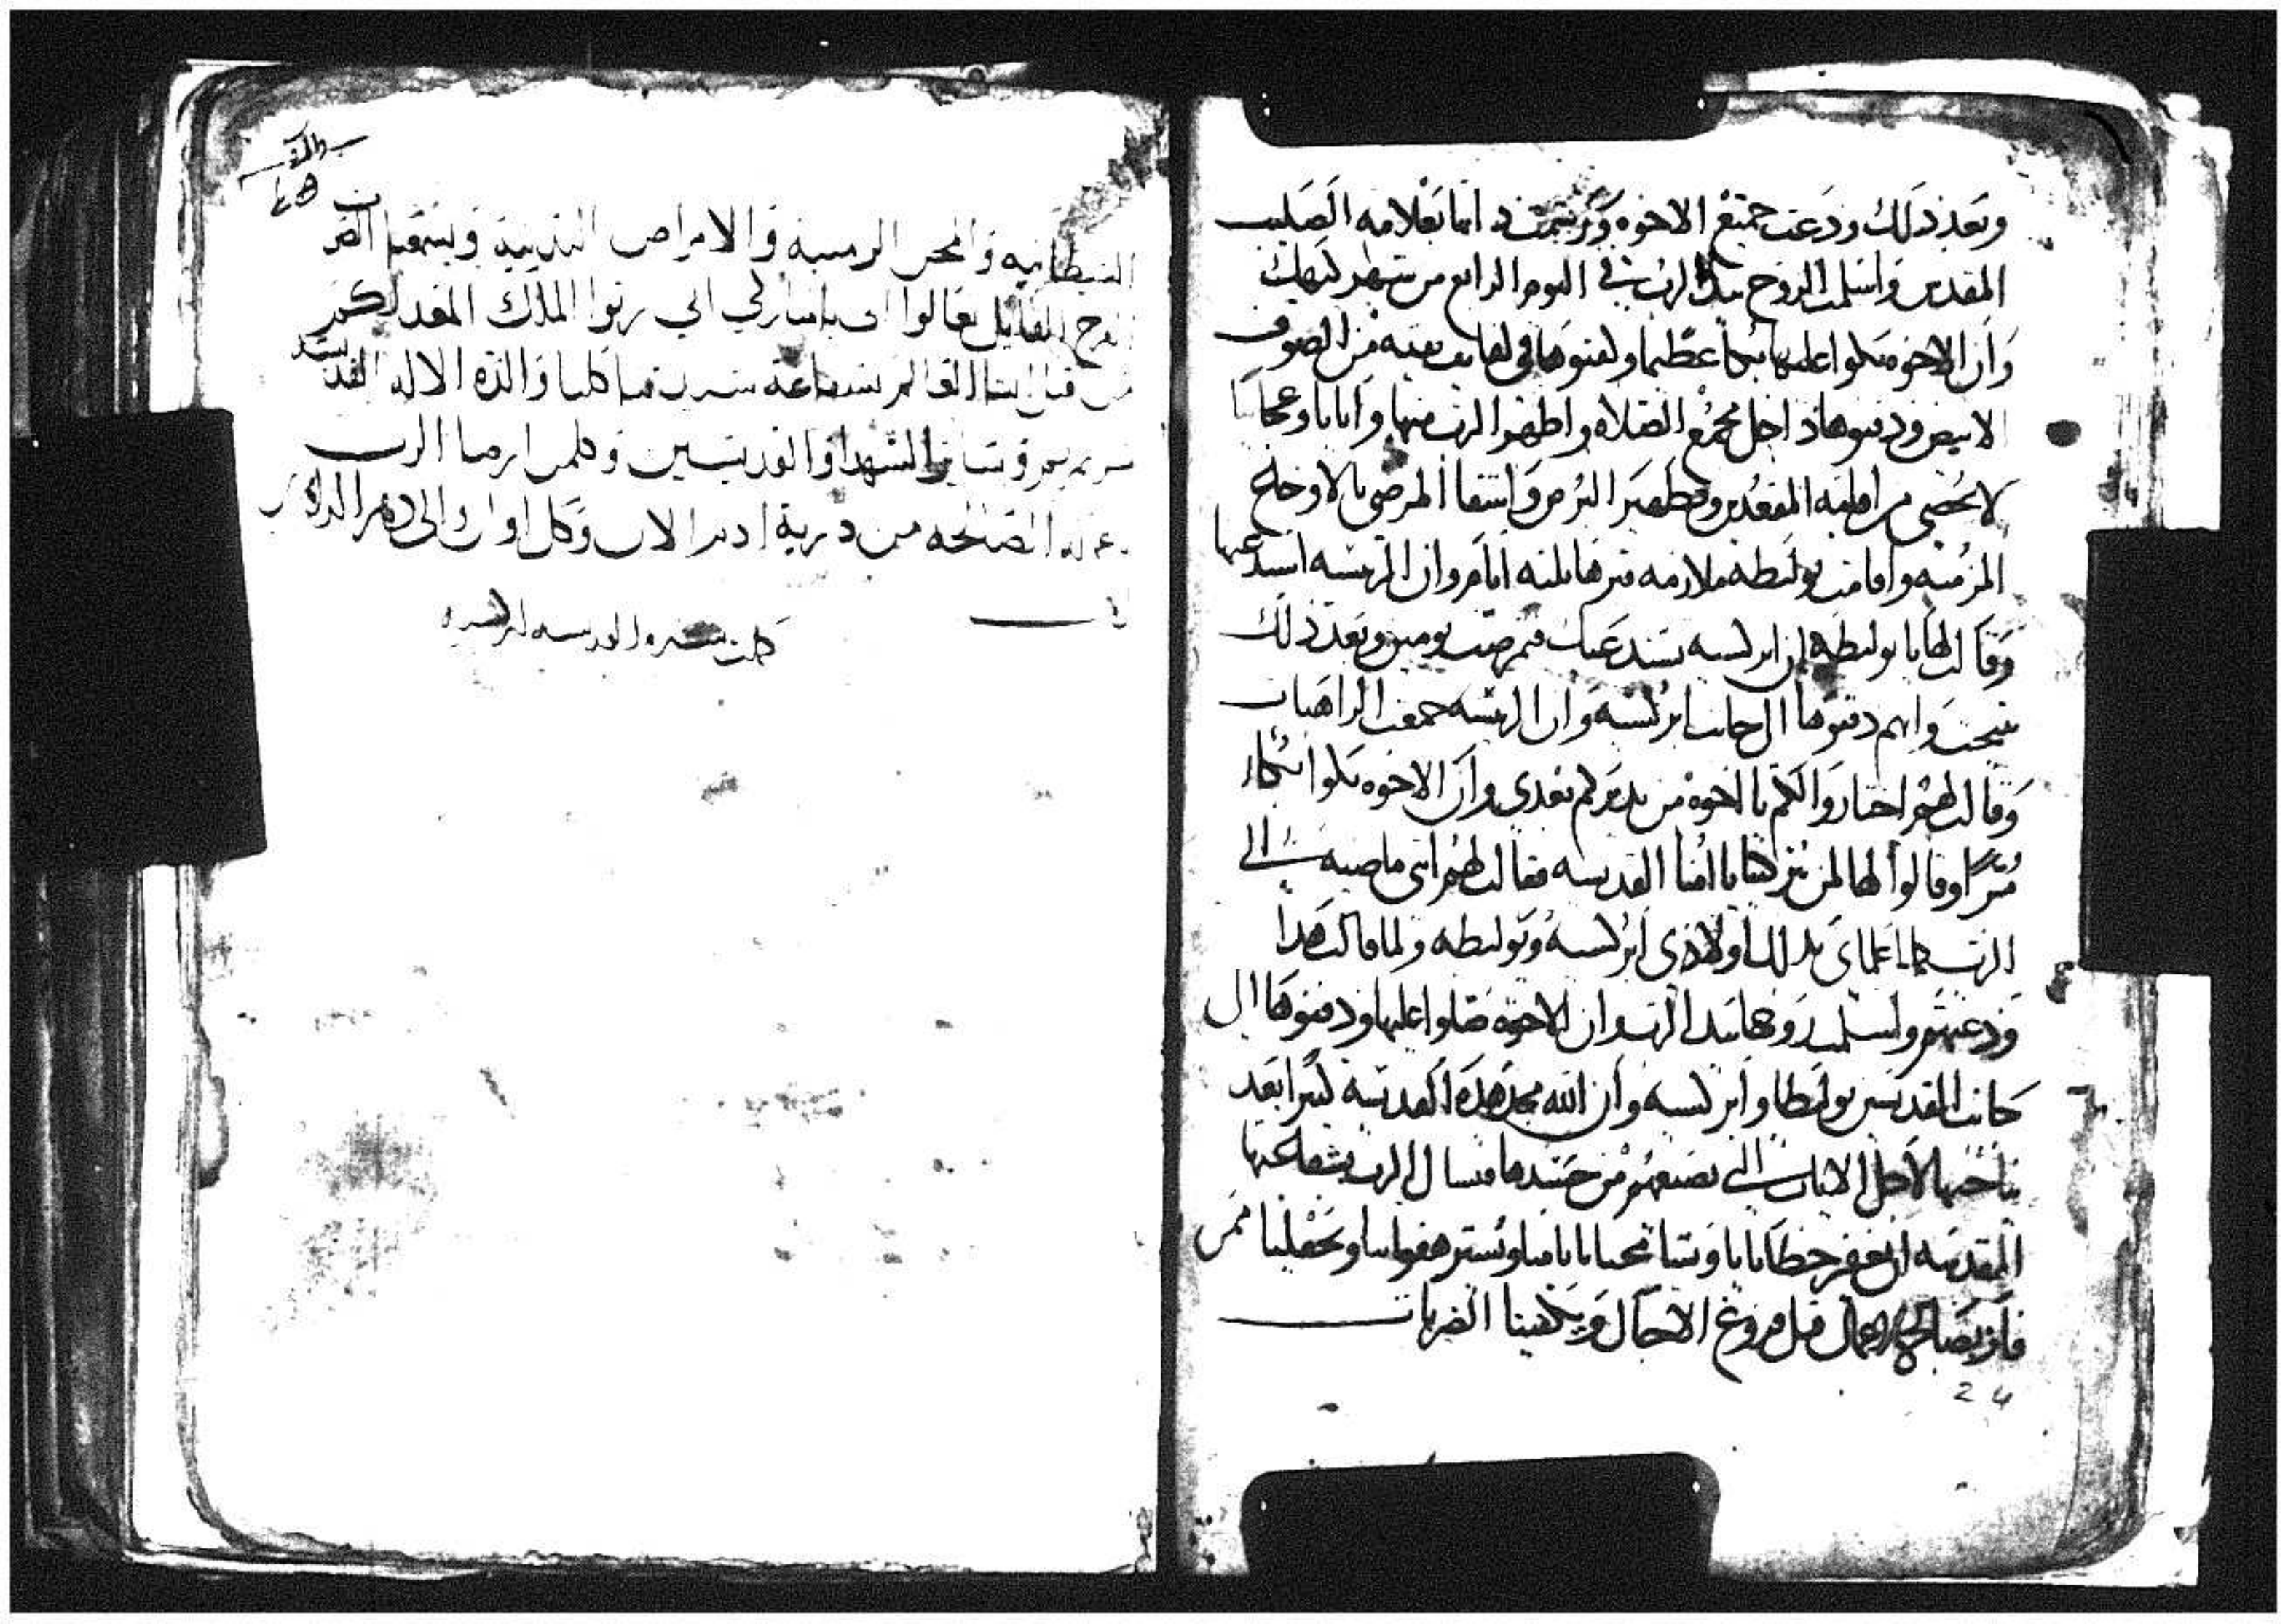 وبعد ذلك ودعت جميع الاخوه ورشمت ذاتها بعلامه الصليب
المقدس واسلمت الروح بيد الرب في اليوم الرابع من شهر كيهك
وان الاخوه بكوا عليها بكا عظيما ولفوها في لفايف نقيه من الصوف
الابيض ودفنوها داخل مجمع الصلاه واظهر الرب منها ايات وعجايبا
لا تحصى من اقامه المقعدين وتطهير البرص واشفا المرضى بالاوجاع
المزمنه واقامت يولیطه ملازمه قبرها ثلثه ايام وان الريسه استدعتها
وقالت لها يا يوليطه ان ابركسيه تستدعيك فمرضت يومين وبعد ذلك
تنيحت وانهم دفنوها الى جانب ابركسيه وان الريسه جمعت الراهبات
وقالت لهم اختاروا لكم يا اخوه من يدبركم بعدي وان الاخوه بكوا بكاء
مرا وقالوا لها لمن تتركينا يا امنا القديسه فقالت لهم انى ماضيه الى
الرب كما اعلماني بذلك اولادى ابركسيه ويوليطه ولما قالت هذا
ودعتهم واسلمت روحها بيد الرب وان الاخوه صلوا عليها ودفنوها الى
جانب القديسين يوليطا وابركسيه وان الله مجد هذه القديسه كثيرا بعد
نياحتها لاجل الايات التي تصنعهم من جسدها فنسال الرب بشفاعتها
المقدسه ان يغفر خطايانا ويسامحنا باثامنا ويستر هفواتنا ويجعلنا ممن
فاز بصالح الاعمال قبل فروغ الاجال ويكفينا الضربات
24
الشيطانيه والمحن الزمنيه والامراض البدنيه ويسمعنا
الفرح القايل تعالوا الي يا مباركي ابي رثوا الملك المعد لكم
من قبل انشا العالم بشفاعة ستنا كلنا والدة الاله
مريم ومرقس وساير الشهدا والقديسين وكلمن ارضا الرب
باعماله الصالحه من ذرية ادم الان وكل اوان والى دهر الداهرين
كملت سيره القديسه ابركسيه